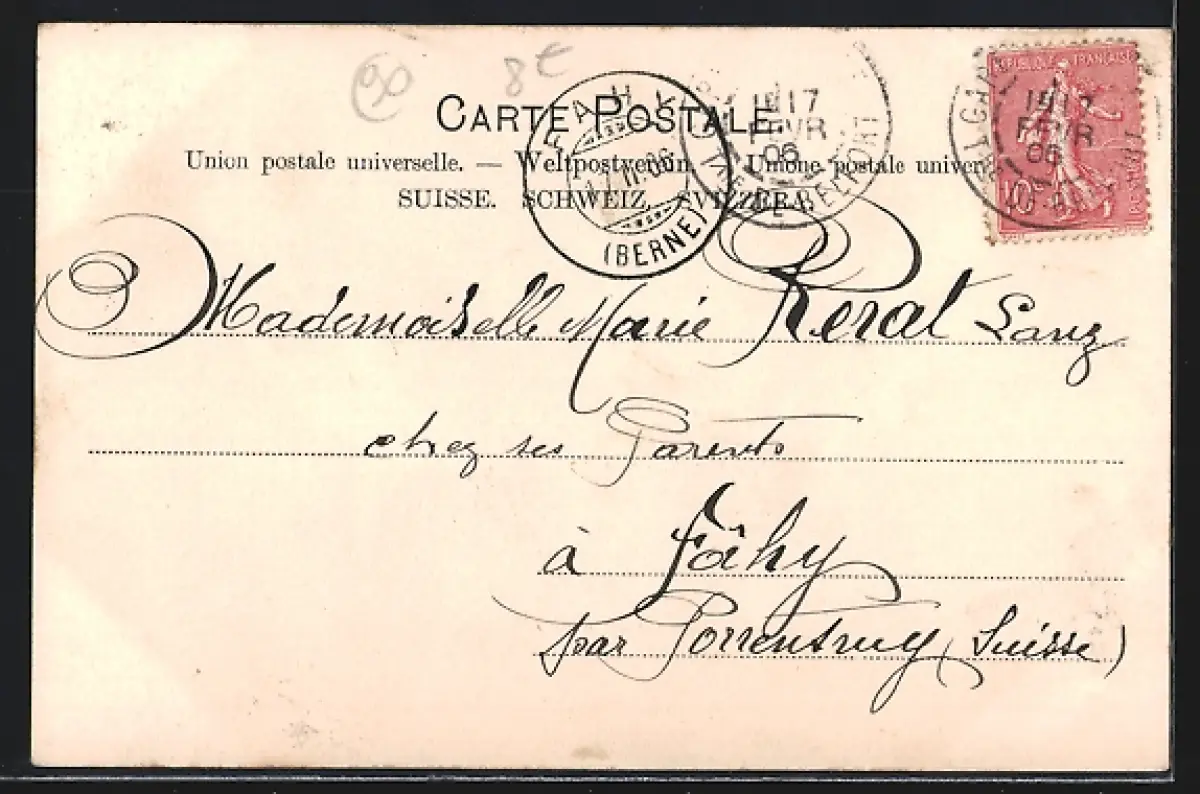 90
8€
CARTE POSTALE.
Union postale universelle. — Weltpostverein. — Unione postale univer
SUISSE. SCHWEIZ. SVIZZERA.
FAHY
II.06
(BERNE)
17
FEVR
06
DE BELFORT
REPUBLIQUE FRANÇAISE
17
FEVR
06
10c
POSTES
Mademoiselle Marie Rerat Lanz
chez ses Parents
à Fâhy
par Porrentruy (Suisse)